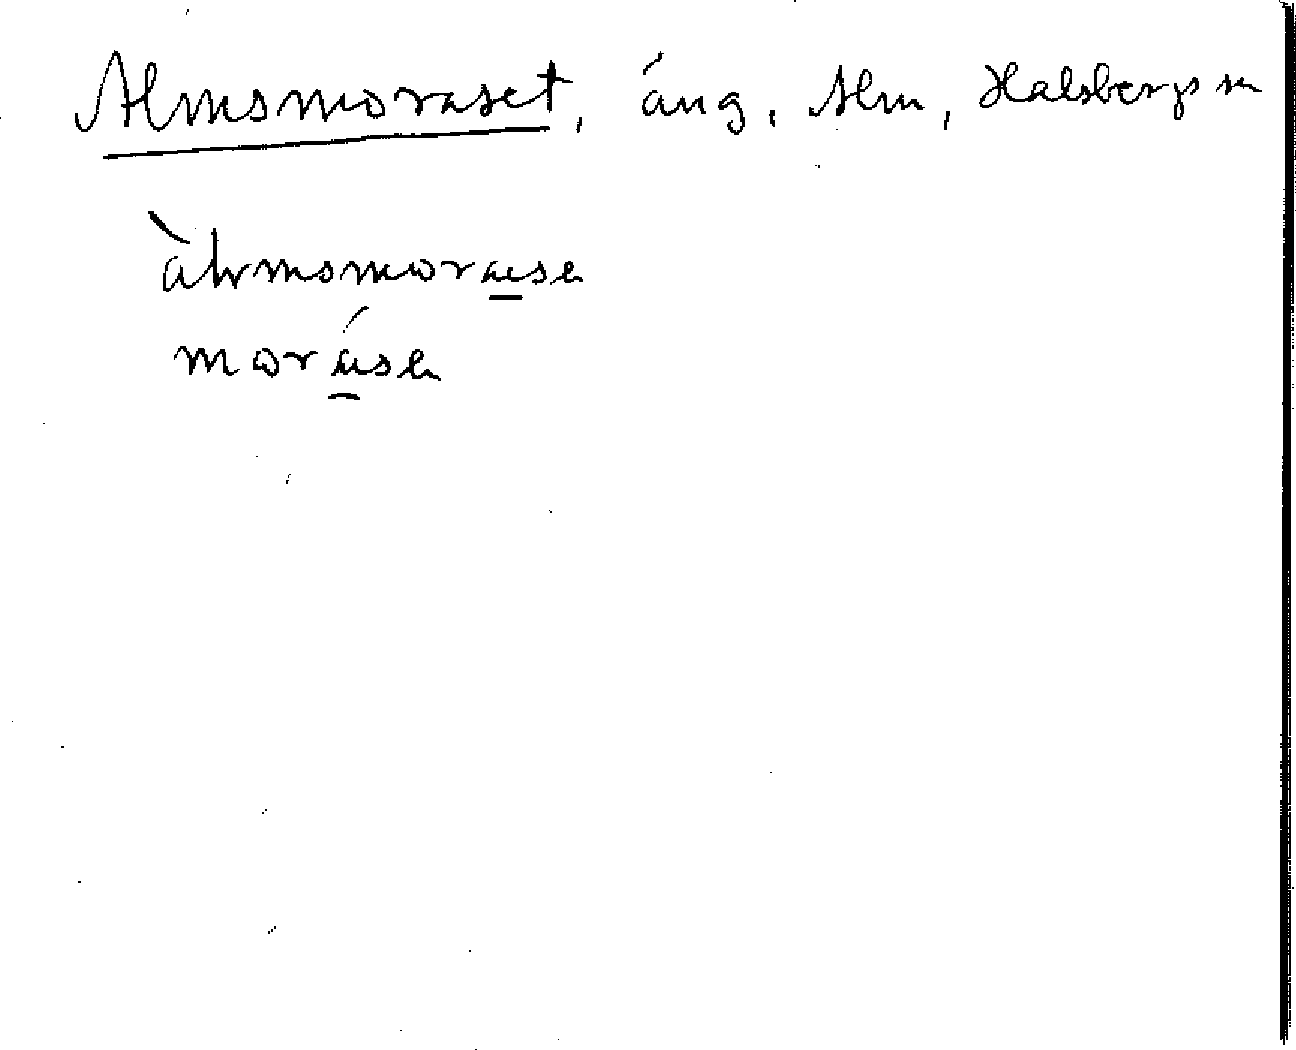 Almsmoraset, äng, Alm, Halsbergs sn
àlvmsmorase
moráse